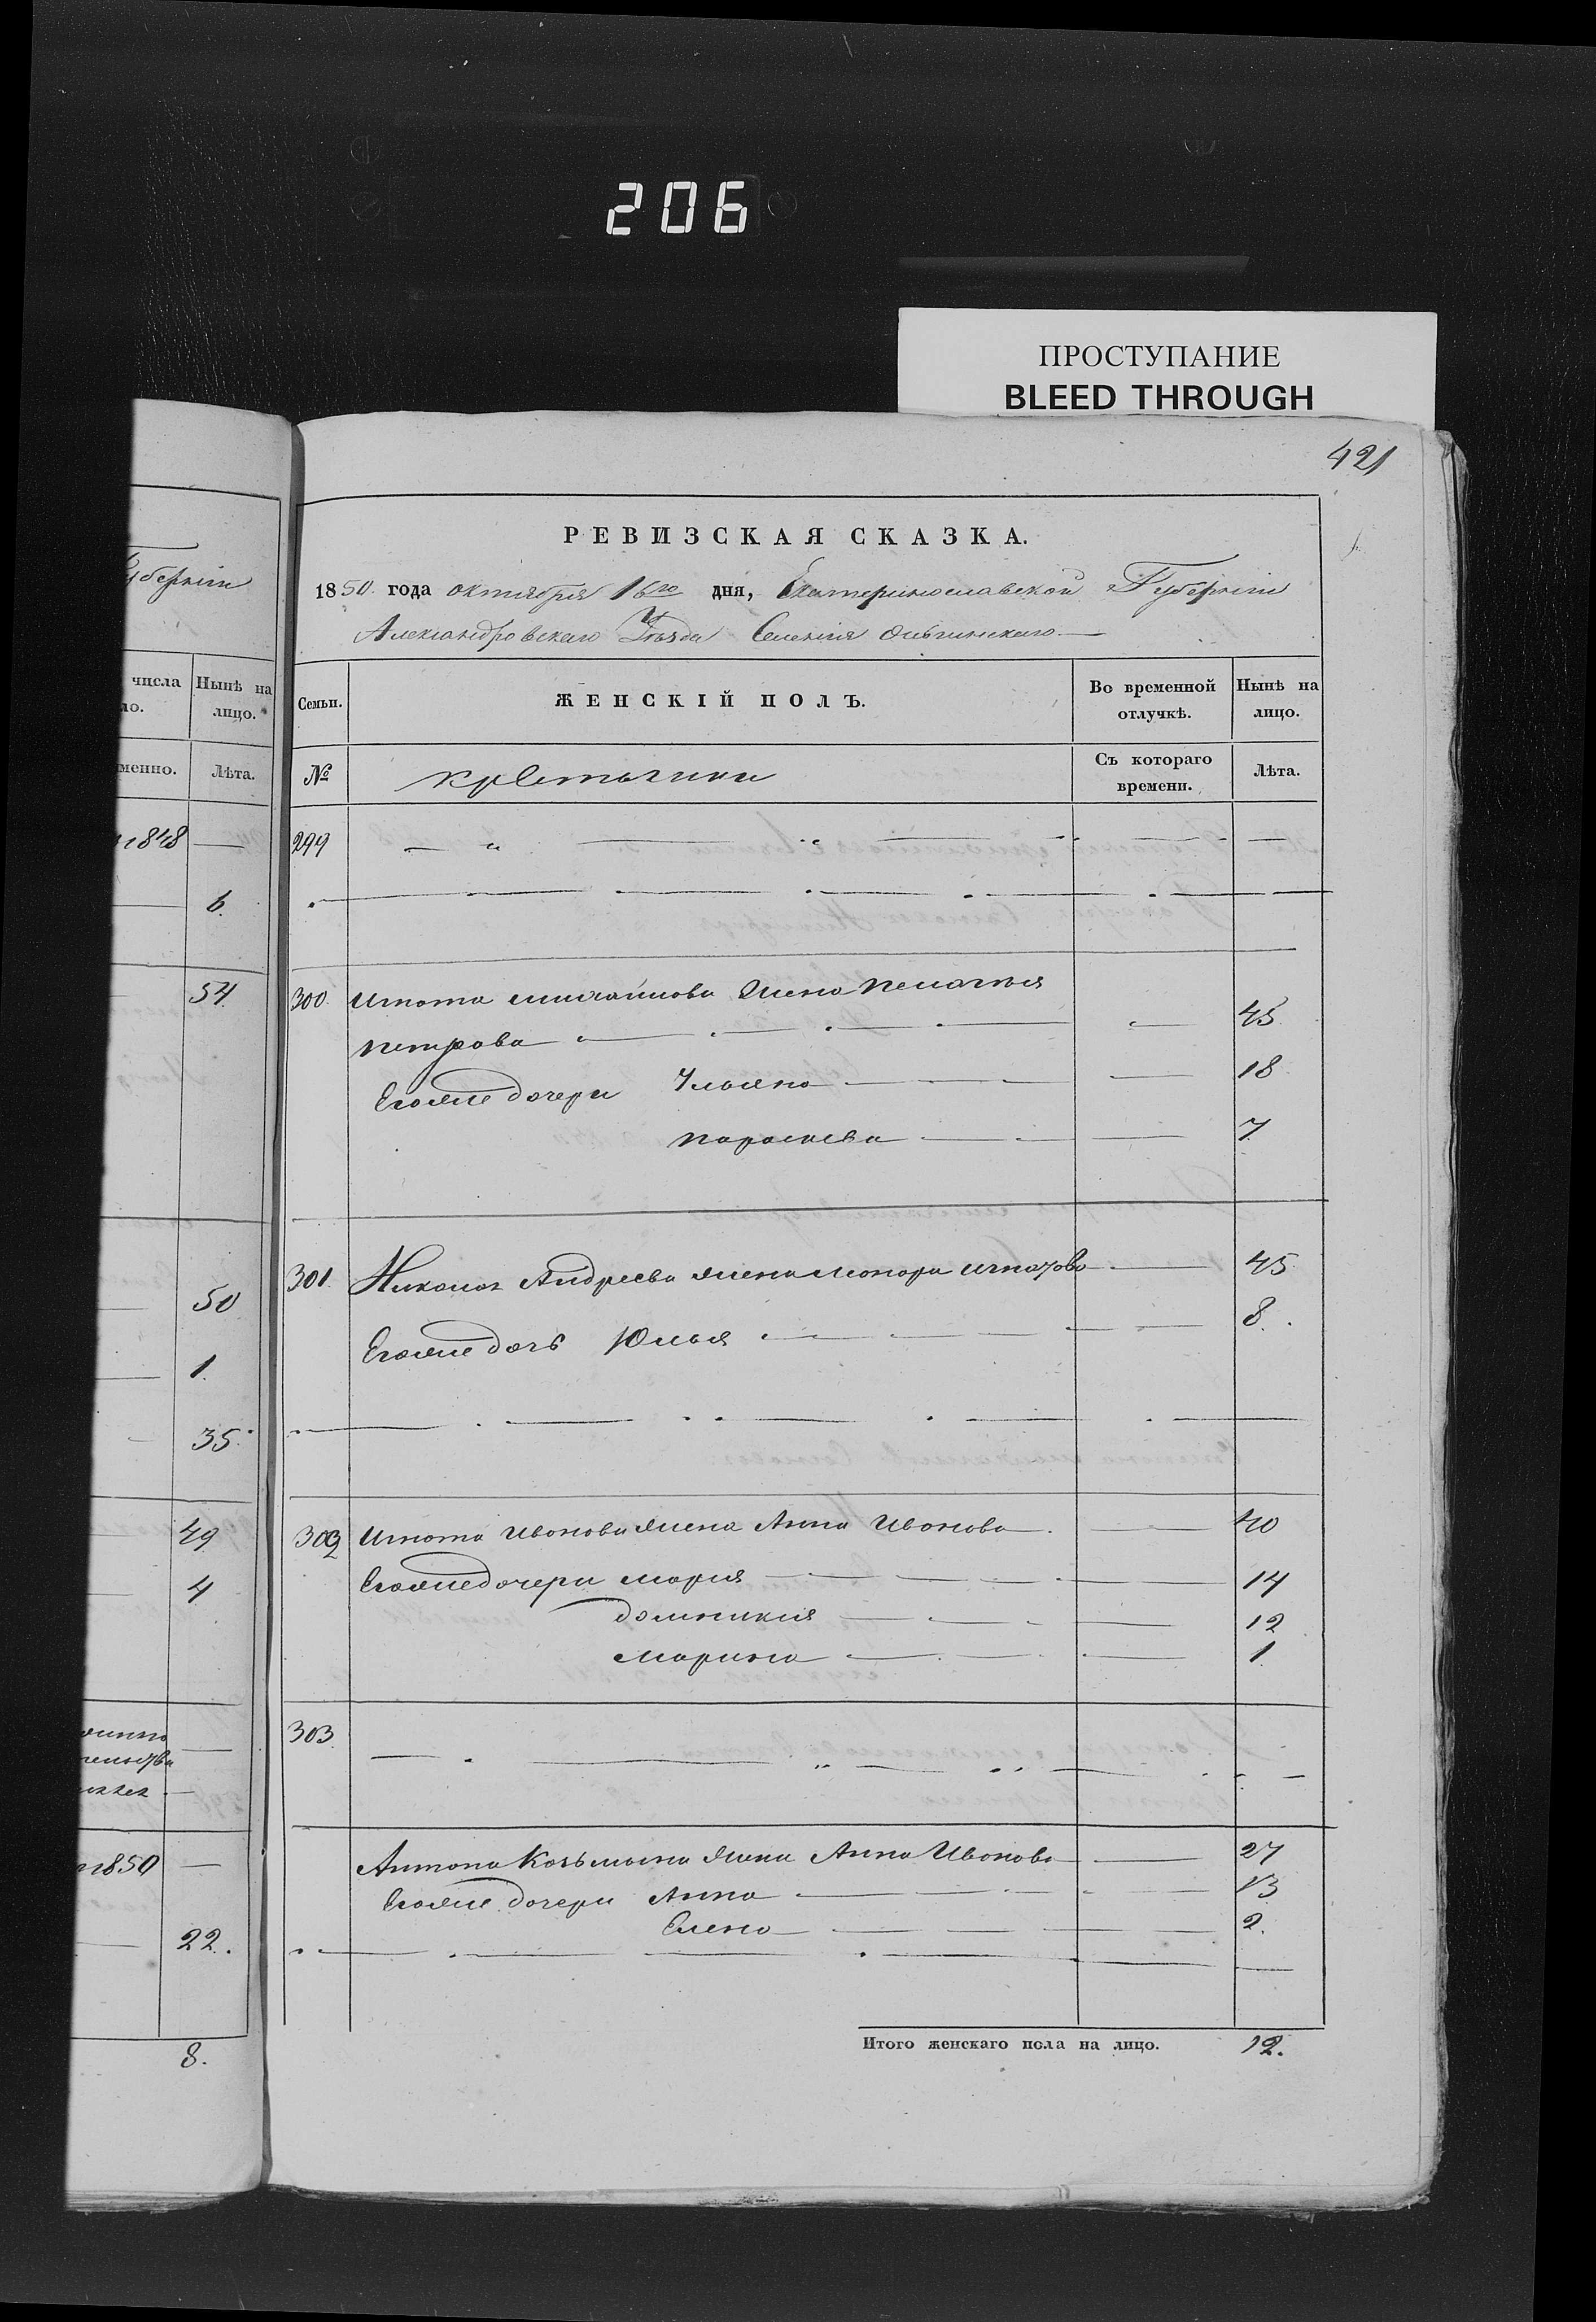 206
ПРОСТУПАНИЕ
BLEED THROUGH
421
РЕВИЗСКАЯ СКАЗКА.
1850 года октября 16го дня, Екатеринославской Губерніи
Александровскаго Уѣзда Селенія Ольгинскаго
Губерніи
числа
ло.
Нынѣ на лицо.
менно.
Лѣта.
1848 —
6.
54
50
1.
35.
49
4
1850 —
22.
8.
Семьи. ЖЕНСКІЙ ПОЛЪ. Во временной отлучкѣ. Нынѣ на лицо.
№ Съ котораго времени. Лѣта.
299
300. Игната Михайлова жена Пелагѣя
Петрова 45
Его же дочери Ульяна 18
Параскева 7
301. Андреева жена Игнатова 45
Его же дочь Юлья 8.
302 Игната Иванова жена Анна Иванова 40
Его же дочери Мария 14
Домникия 12
Марина 1
303.
Антона Козьмина жена Анна Иванова 27
Его же дочери Анна 13
Елена 2.
Итого женскаго пола на лицо. 12.